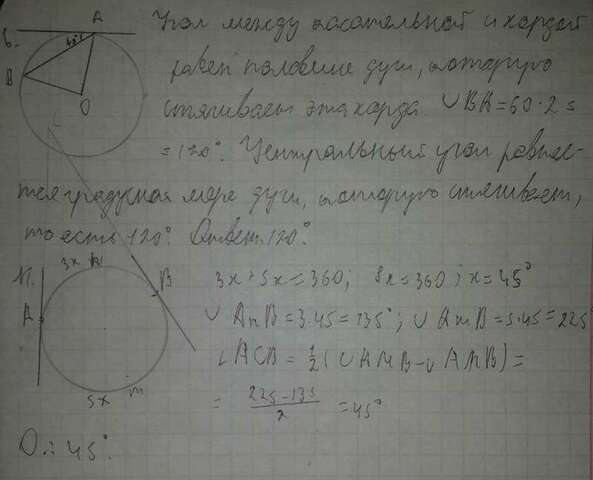 6. A Угол между касательной и хордой
B равен половине дуги, которую
O стягивает эта хорда. ∪BA=60·2=
=120°. Центральный угол равняе-
тся градусной мере дуги, которую стягивает,
то есть 120°. Ответ: 120°
11. 3x n B 3x+5x=360; 8x=360; x=45°
A ∪AnB=3·45=135°; ∪AmB=5·45=225°
∠ACB=½(∪AmB-∪AnB)=
5x m = 225-135/2 =45°
О.: 45°.